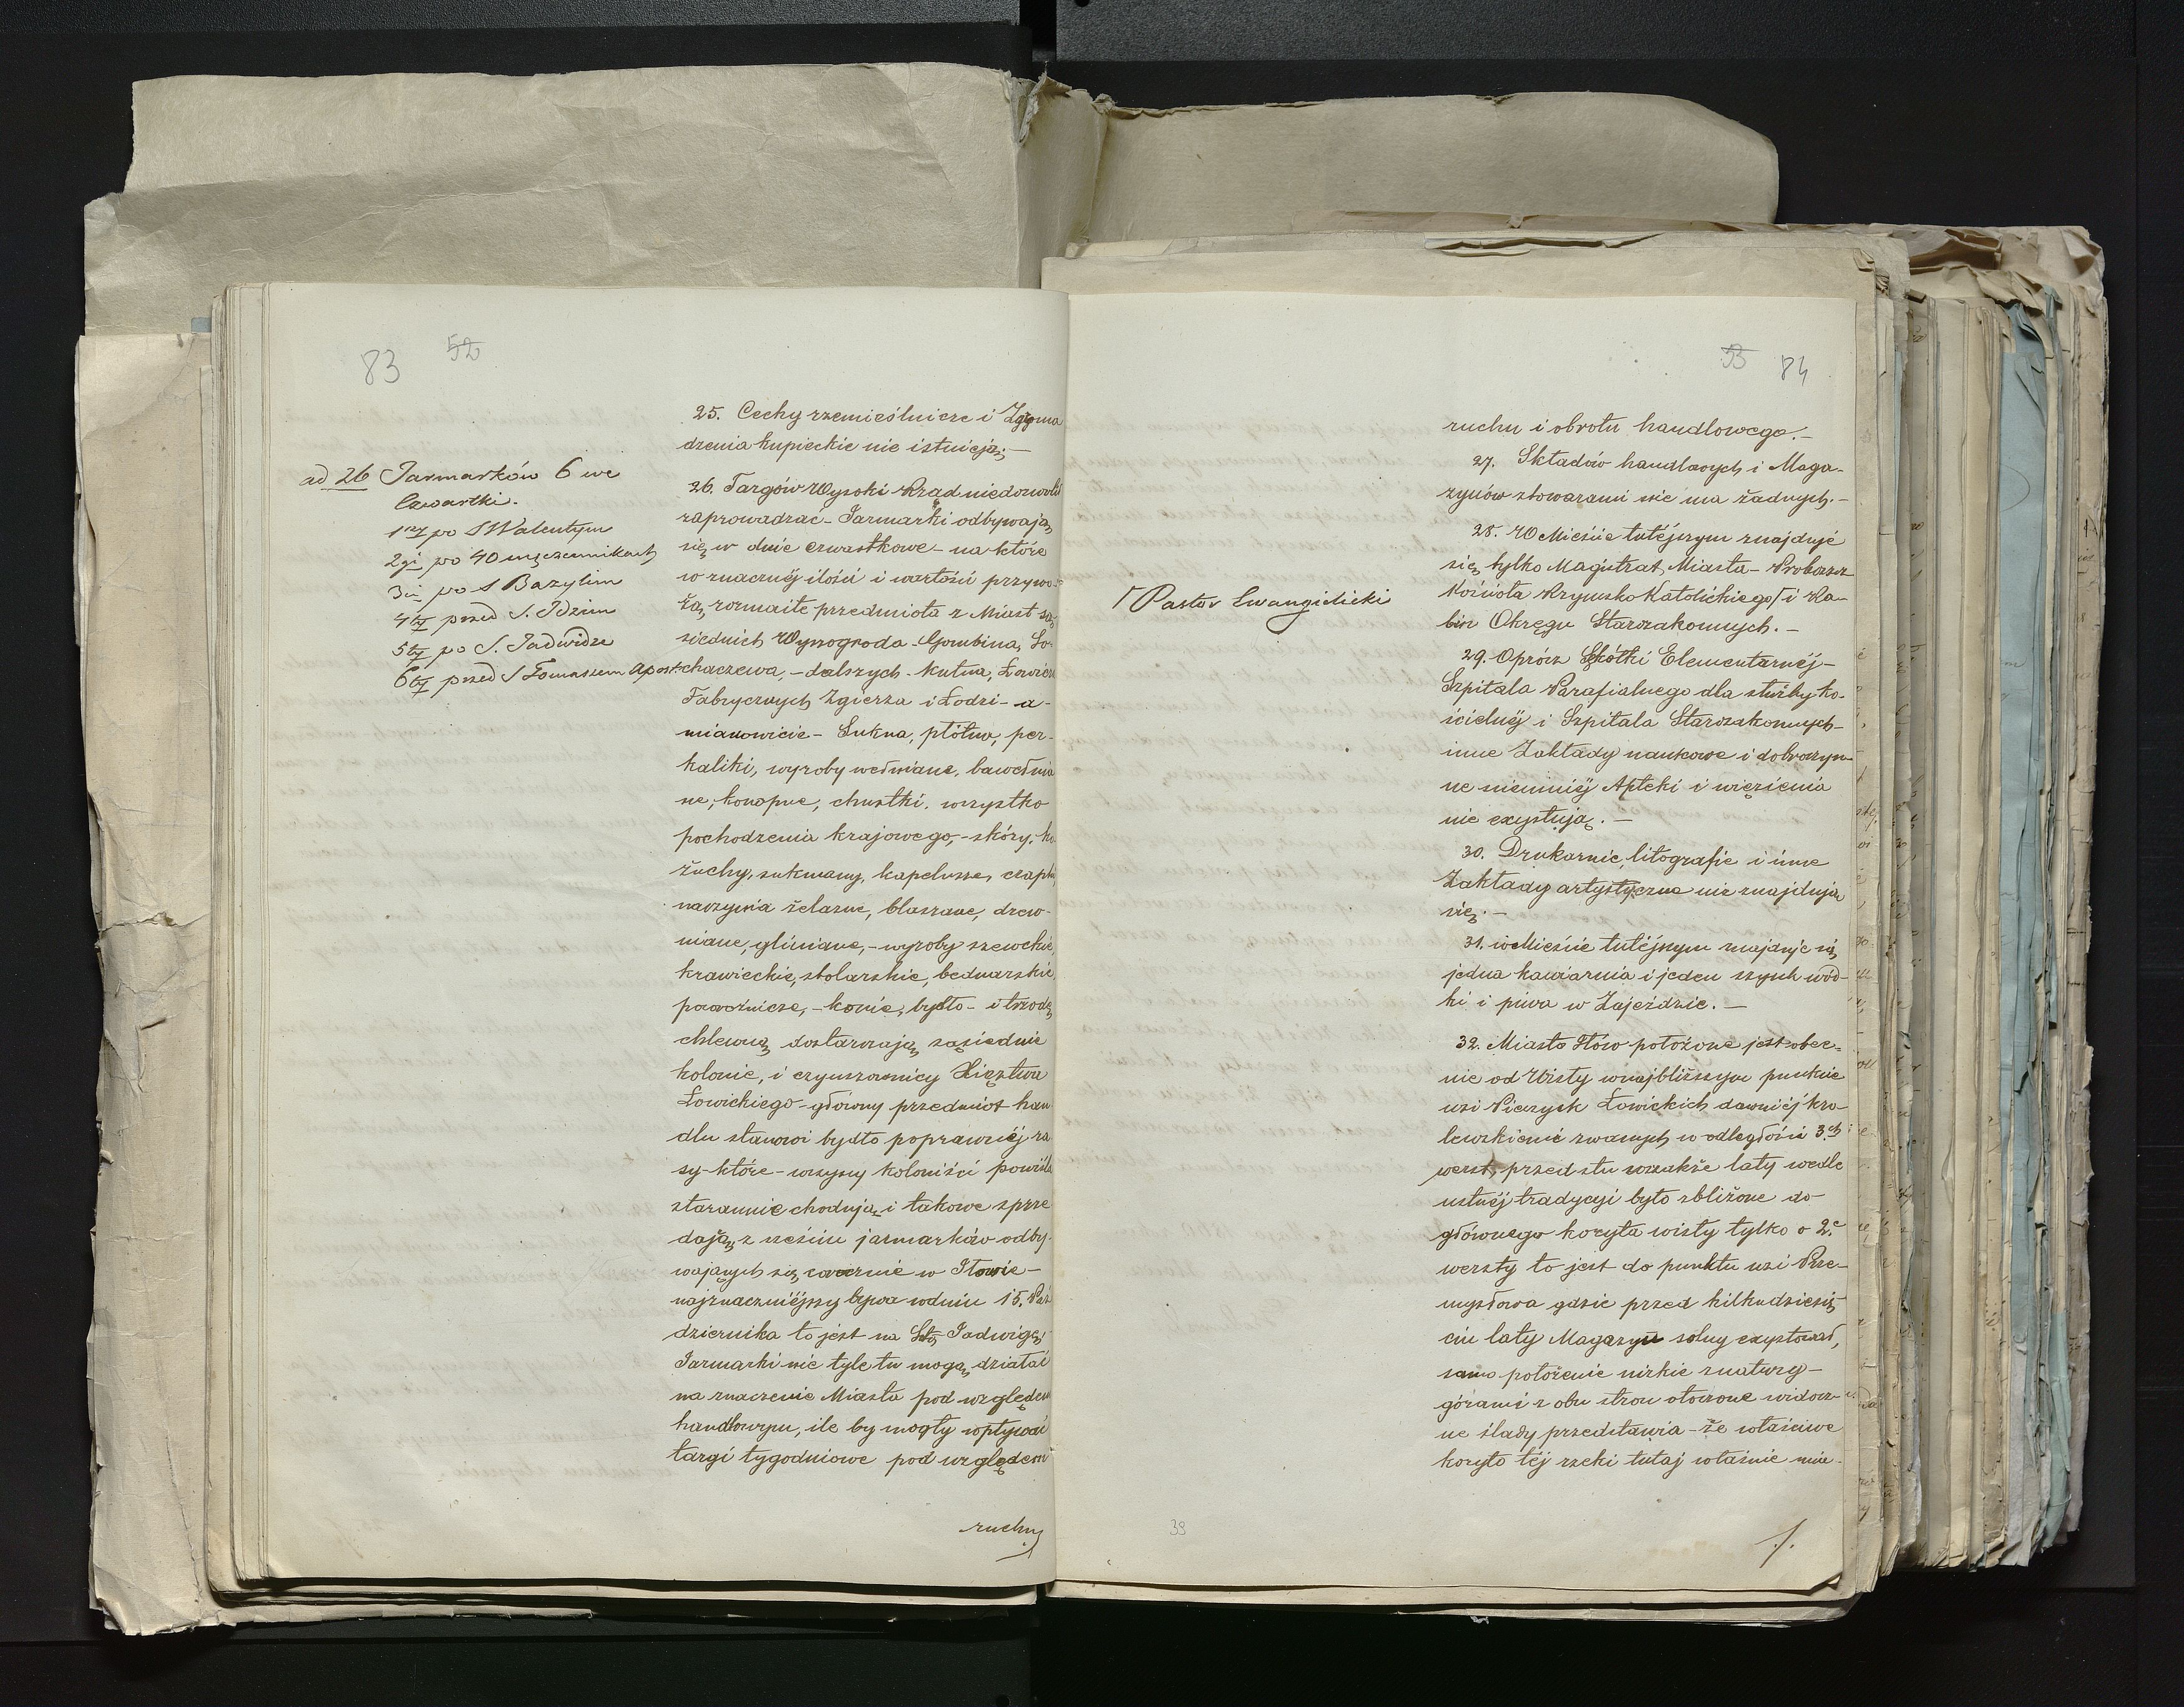 83 52
ad 26 Jarmarków 6 we
Czwartki.
1szy po S Walentym
2gi po 40 męczennikach
3ci po S Bazylim
4ty przed S. Idzim
5ty po S. Jadwidze
6ty przed S Tomaszem Apost:
25. Cechy rzemieślnicze i Zgroma
dzenia kupieckie nie istnieją;—
26. Targów Wysoki Rząd niedozwolił
zaprowadzać – Jarmarki odbywają
się w dnie czwartkowe – na które
w znacznéj ilości i wartości przywo-
żą rozmaite przedmiota z Miast są-
siednich Wyszogroda Gombina, So-
chaczewa, – dalszych – Kutna, Łowicza
Fabrycznych Zgierza i Łodzi – a –
mianowicie – Sukna, płótna, per-
kaliki, wyroby wełniane, bawełnia
ne, konopne, chustki. wszystko
pochodzenia krajowego, – skóry, ko
żuchy, sukmany, kapelusze, czapki,
naczynia żelazne, blaszane, drew-
niane, gliniane, – wyroby szewckie,
krawieckie, stolarskie, bednarskie,
powoźnicze, – konie, bydło – i trzodę
chlewną dostarczają sąsiednie
kolonie, i czynszownicy Xięztwa
Łowickiego – główny przedmiot han
dlu stanowi bydło poprawnéj ra
sy – które – wszyscy koloniści powiśla
starannie chodują i takowe sprze
dają, z sześciu jarmarków odby-
wających się corocznie w Iłowie –
najznaczniéjszy bywa w dniu 15. Paź
dziernika to jest na Stą Jadwigę,
Jarmarki nie tyle tu mogą działać
na znaczenie Miasta pod względem
handlowym, ile by mogły wpływać
targi tygodniowe pod względem
ruchu
53 84
Pastor Ewangielicki
ruchu i obrotu handlowego. –
27. Składów handlowych i Maga-
zynów z towarami nie ma żadnych. –
28. W Mieście tutéjszym znajduje
się tylko Magistrat Miasta – Proboszcz
Kościoła Rzymsko Katolickiego i Ra-
bin Okręgu Starozakonnych. –
29. Oprócz Szkółki Elementarnéj –
Szpitala Parafialnego dla służby ko-
ścielnéj i Szpitala Starozakonnych –
inne Zakłady naukowe i dobroczyn-
ne niemniéj Apteki i więzienia
nie exystują. –
30. Drukarnie, litografie i inne
Zakłady artystyczne nie znajdują
się. –
31. w Mieście tutéjszym znajduje się
jedna kawiarnia i jeden szynk wód-
ki i piwa w Zajeździe. –
32. Miasto Iłów położone jest obec-
nie od Wisły w najbliższym punkcie
wsi Piaczyk Łowickich dawniéj kró-
lewskiemi zwanych w odległości 3.ch
werst, przed stu wszakże laty wedle
ustnéj tradycyi było zbliżone do
głównego koryta wisły tylko o 2.e
wersty to jest do punktu wsi Prze-
mysłowa gdzie przed kilkudziesię
ciu laty Magazyn solny exystował,
samo położenie nizkie z natury –
górami z obu stron otoczone widocz-
ne ślady przedstawia – że właściwe
koryto téj rzeki tutaj właśnie mia-
39
./.